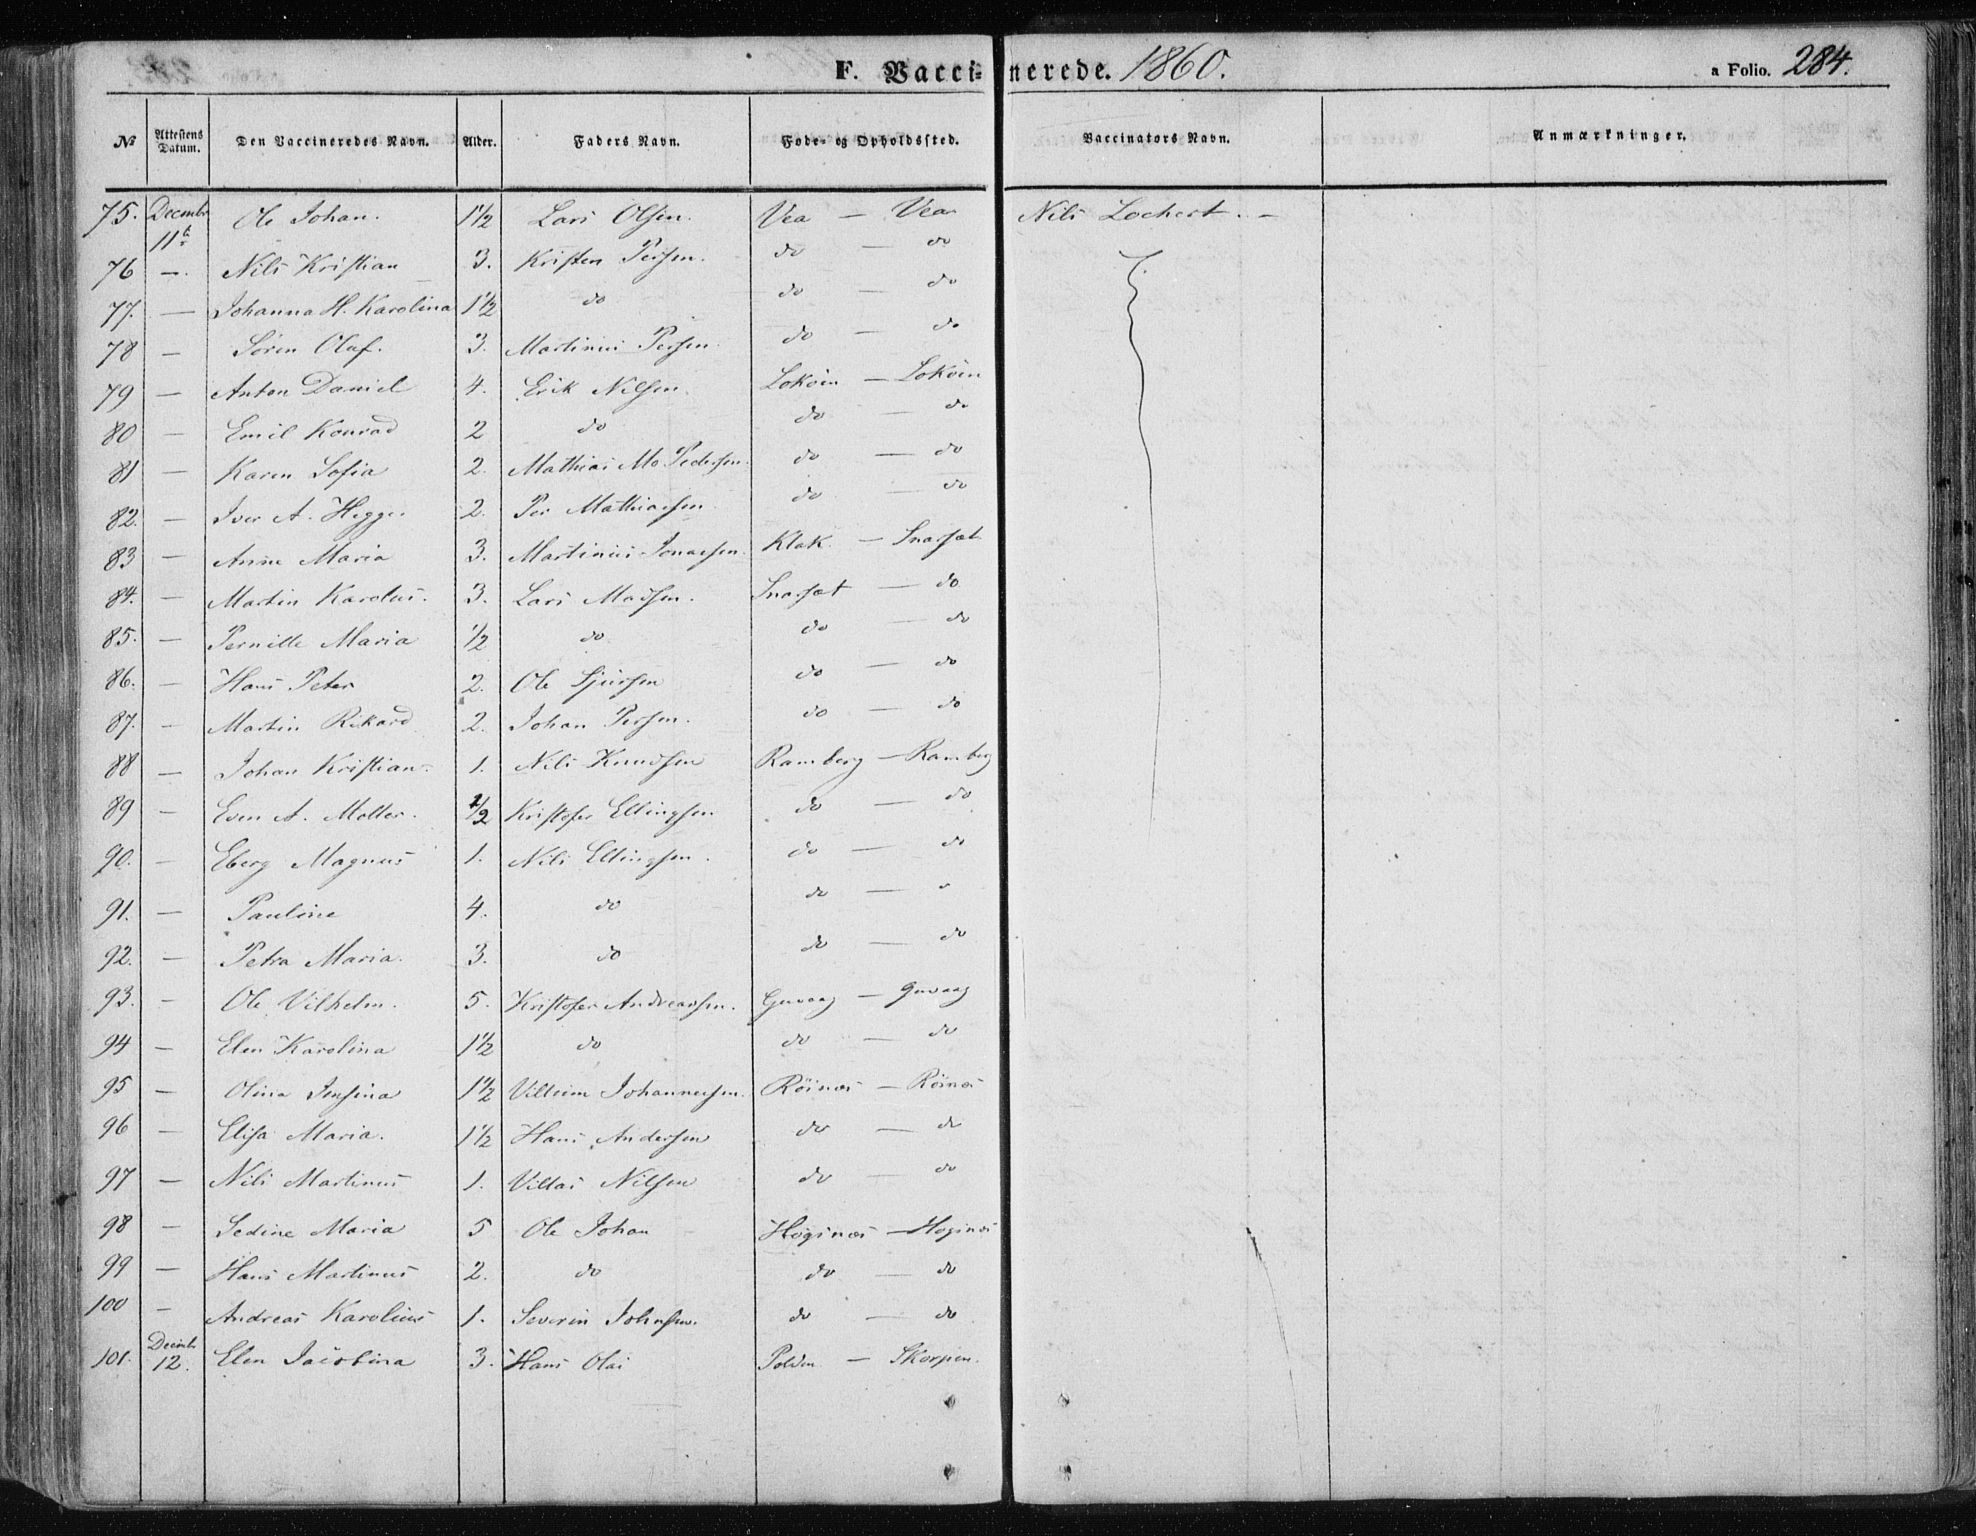 F. Vaccinerede. 1860. a Folio. 284.
№ Attestens Datum. Den Vaccineredes Navn. Alder. Faders Navn. Føde- og Opholdssted. Vaccinators Navn. Anmærkninger.
75. Decembr 11te Ole Johan. 1½ Lars Olsen. Vea — Vea Nils Lochert. —
76 — Nils Kristian 3. Kristen Persen. do — do
77. — Johanna H. Karolina 1½ do do — do
78 — Sören Oluf. 3. Martinus Persen. do — do
79 — Anton Daniel 4. Erik Nilsen. Loköen — Loköen
80 — Emil Konrad 2 do do — do
81 — Karen Sofia 2. Mathias Mo Pedersen. do — do
82. — Iver A. Hegge. 2. Per Mathiassen. do — do
83 — Anne Maria 3. Martinus Jonassen. Klak — Snarsæt
84. — Martin Karolus. 3. Lars Madsen. Snarsæt — do
85. — Pernille Maria ½ do do — do
86. — Hans Peter 2. Ole Sjursen do — do
87. — Martin Rikard 2. Johan Persen. do — do
88 — Johan Kristian. 1. Nils Knudsen Ramberg — Ramberg
89 — Even A. Molter. ½ Kristofer Ellingsen do — do
90. — Eberg Magnus 1. Nils Ellingsen. do — do
91. — Pauline 4. do do —
92. — Petra Maria. 3. do do — do
93. — Ole Vilhelm. 5. Kristofer Andreassen. Guvaag — Guvaag
94 — Elen Karolina 1½ do do — do
95 — Olina Jensina 1½ Villum Johannessen. Röinæs — Röinæs
96 — Elisa Maria. 1½ Hans Andersen do — do
97 — Nils Martinus 1. Villas Nilsen do — do
98 — Sedine Maria 5 Ole Johan Höginæs — Höginæs
99 — Hans Martinus 2. do do — do
100 — Andreas Karolius 1. Severin Johnsen. do — do
101. Decembr 12. Elen Jacobina 3. Hans Olai Polden — Skorpen.